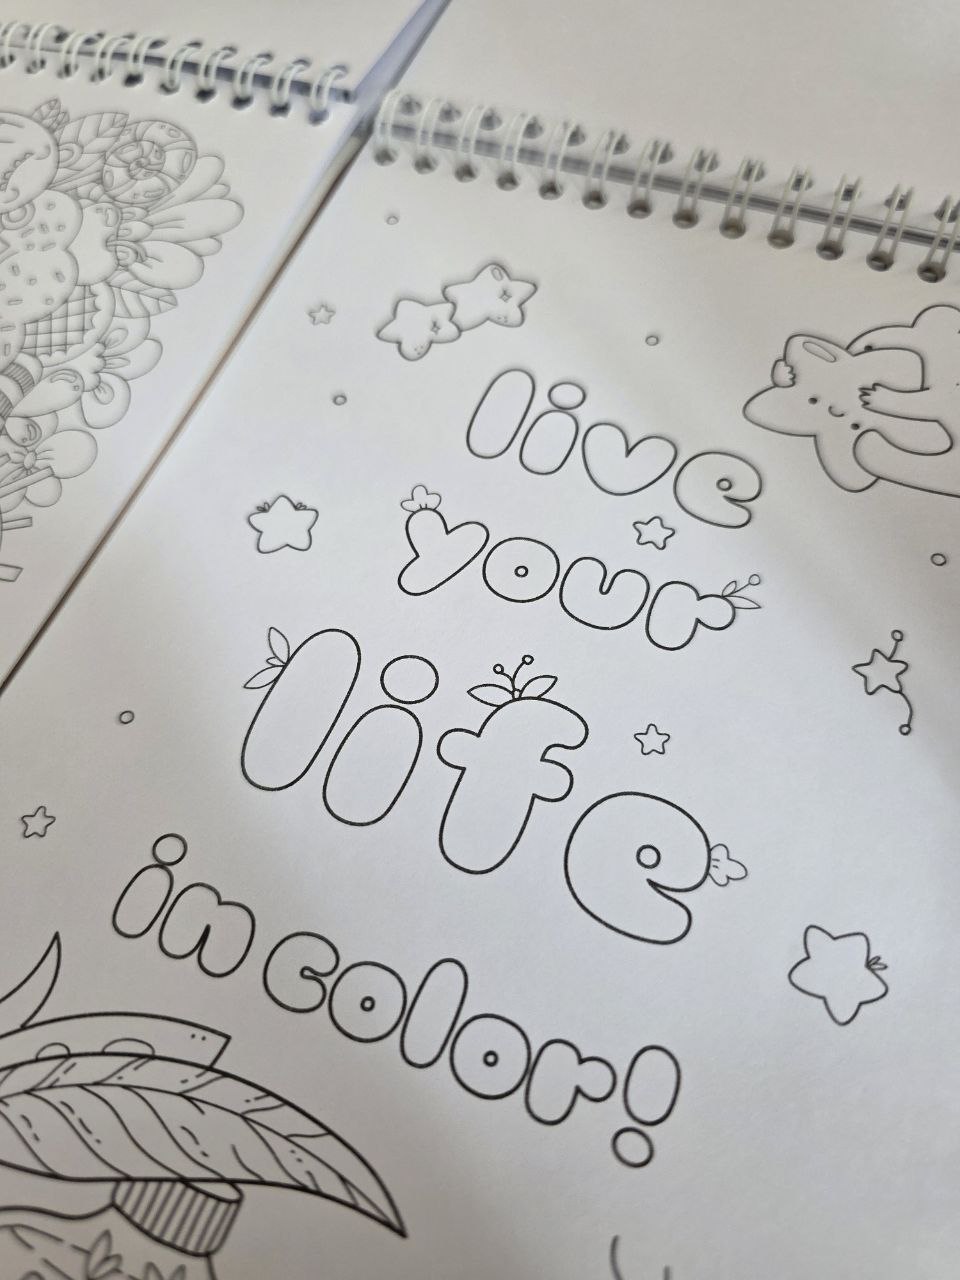 live
your
life
in color!